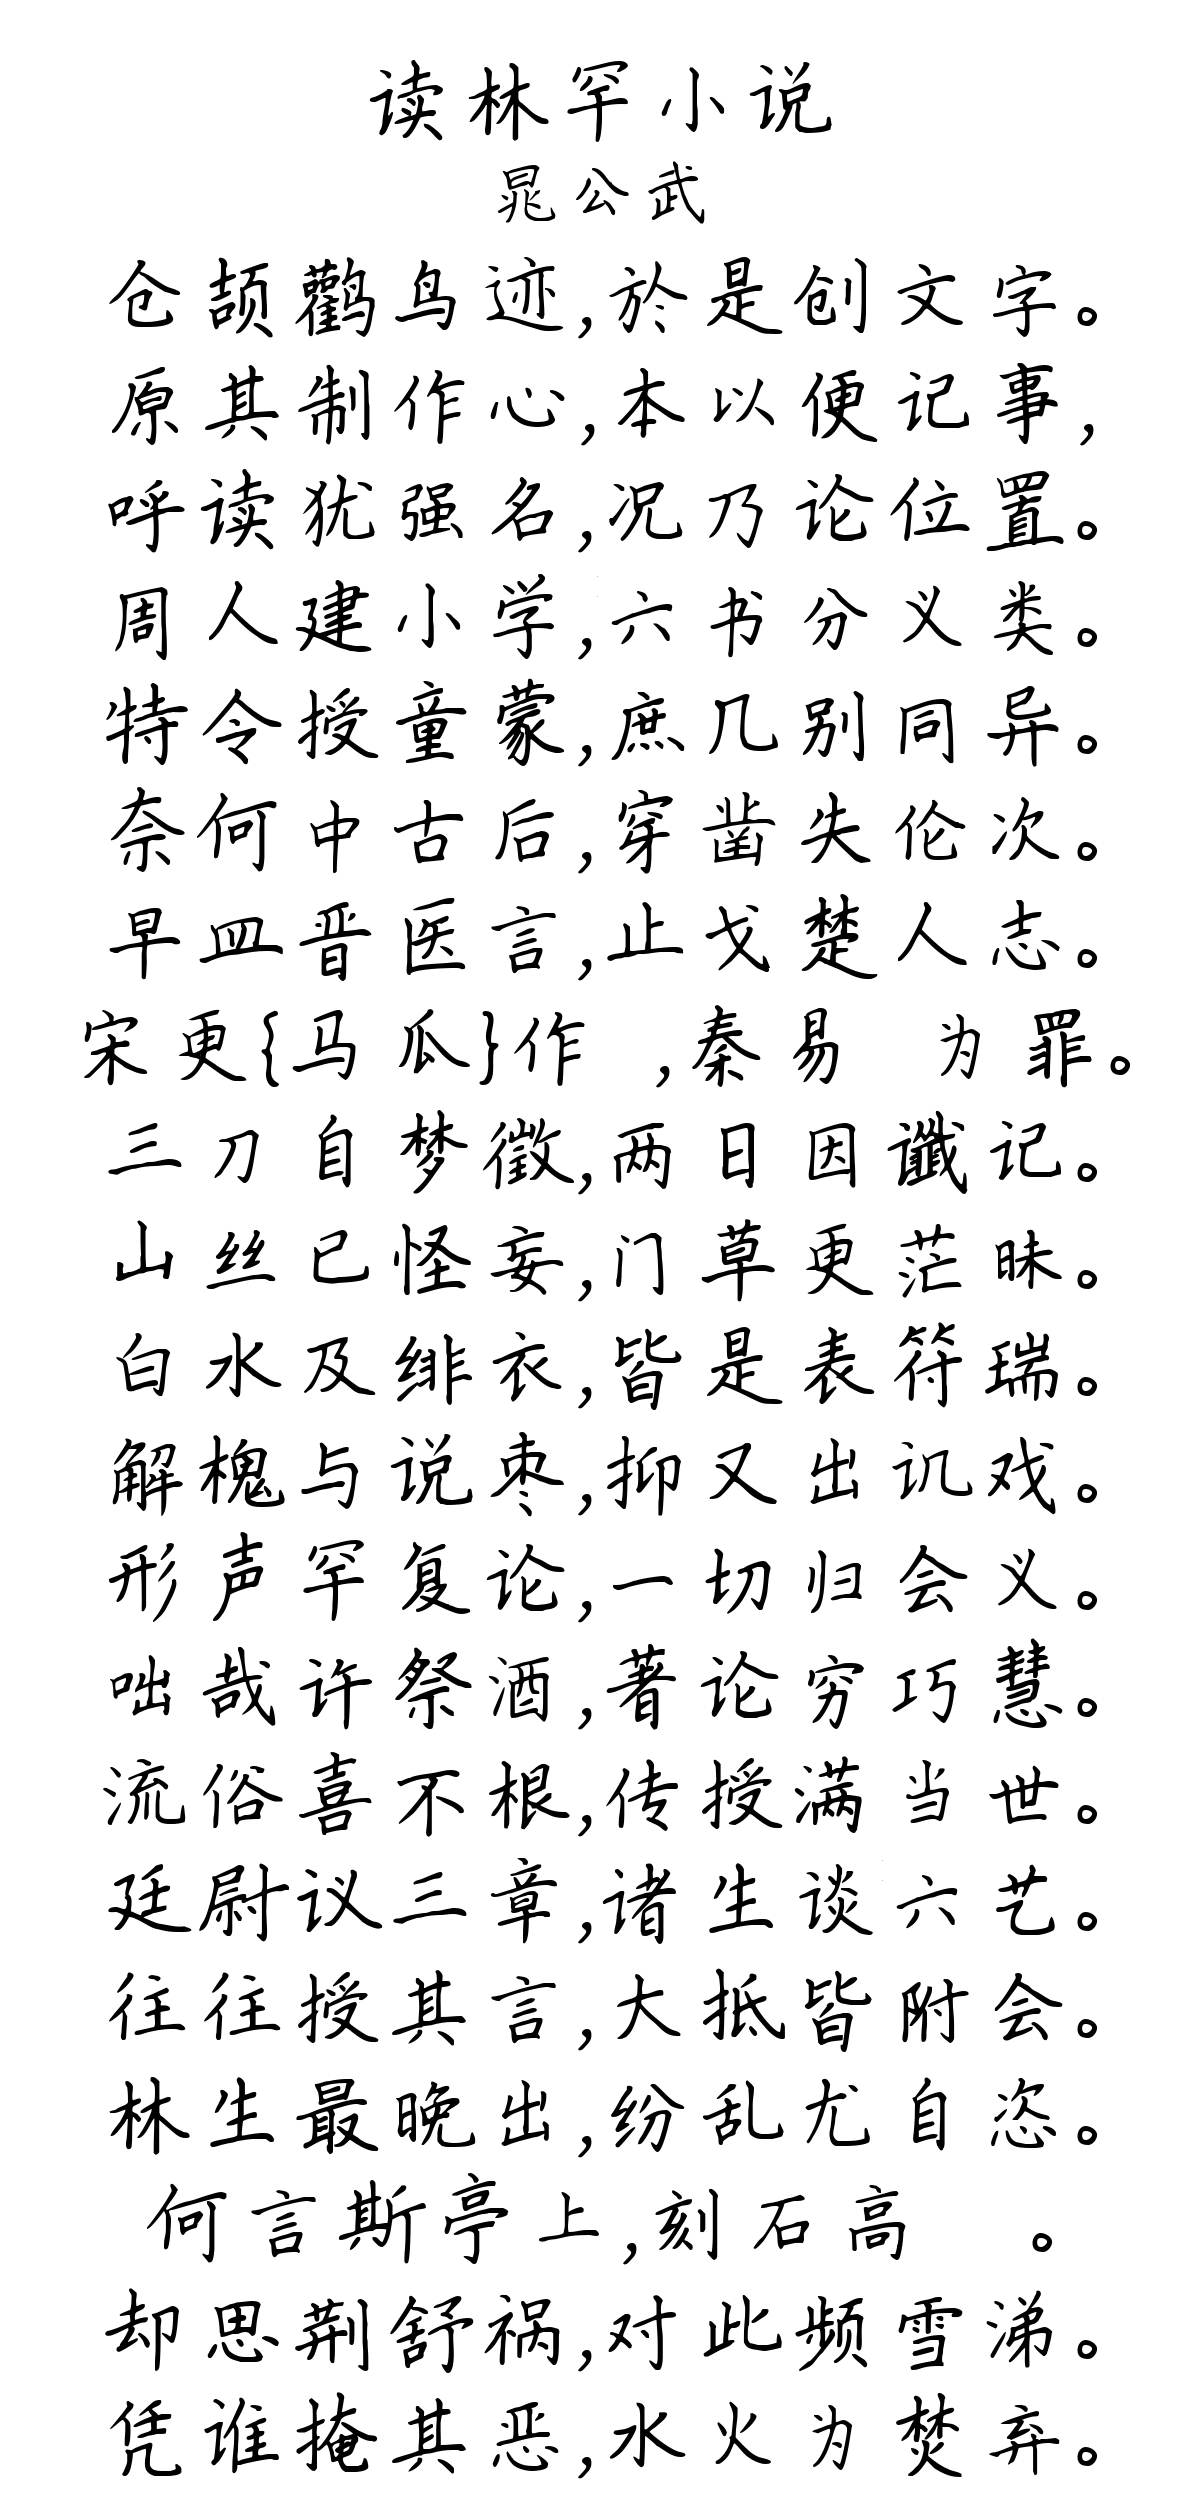 读林罕小说
晁公武
仓颉鹳鸟迹,於是创文字。
原其制作心,本以使记事,
呼读犹强名,况乃论位置。
周人建小学,六书分义类。
持令授童蒙,庶几别同异。
柰何中古后,穿凿失伦次。
早皿晋医言,止戈楚人志。
宋更〖马瓜〗作 ,秦易 为罪。
三刀自梦征,两日因谶记。
山丝已怪妄,门草更茫昧。
白水及绯衣,皆是表符瑞。
解槐与说枣,抑又出讥戏。
形声罕复论,一切归会义。
咄哉许祭酒,著论穷巧慧。
流俗喜不根,传授满当世。
廷尉议三章,诸生谈六艺。
往往授其言,大抵皆附会。
林生最晚出,纷乱尤自恣。
何言斯亭上,刻石高 。
却思荆舒祸,对此频雪涕。
凭谁掩其恶,水火为焚弃。